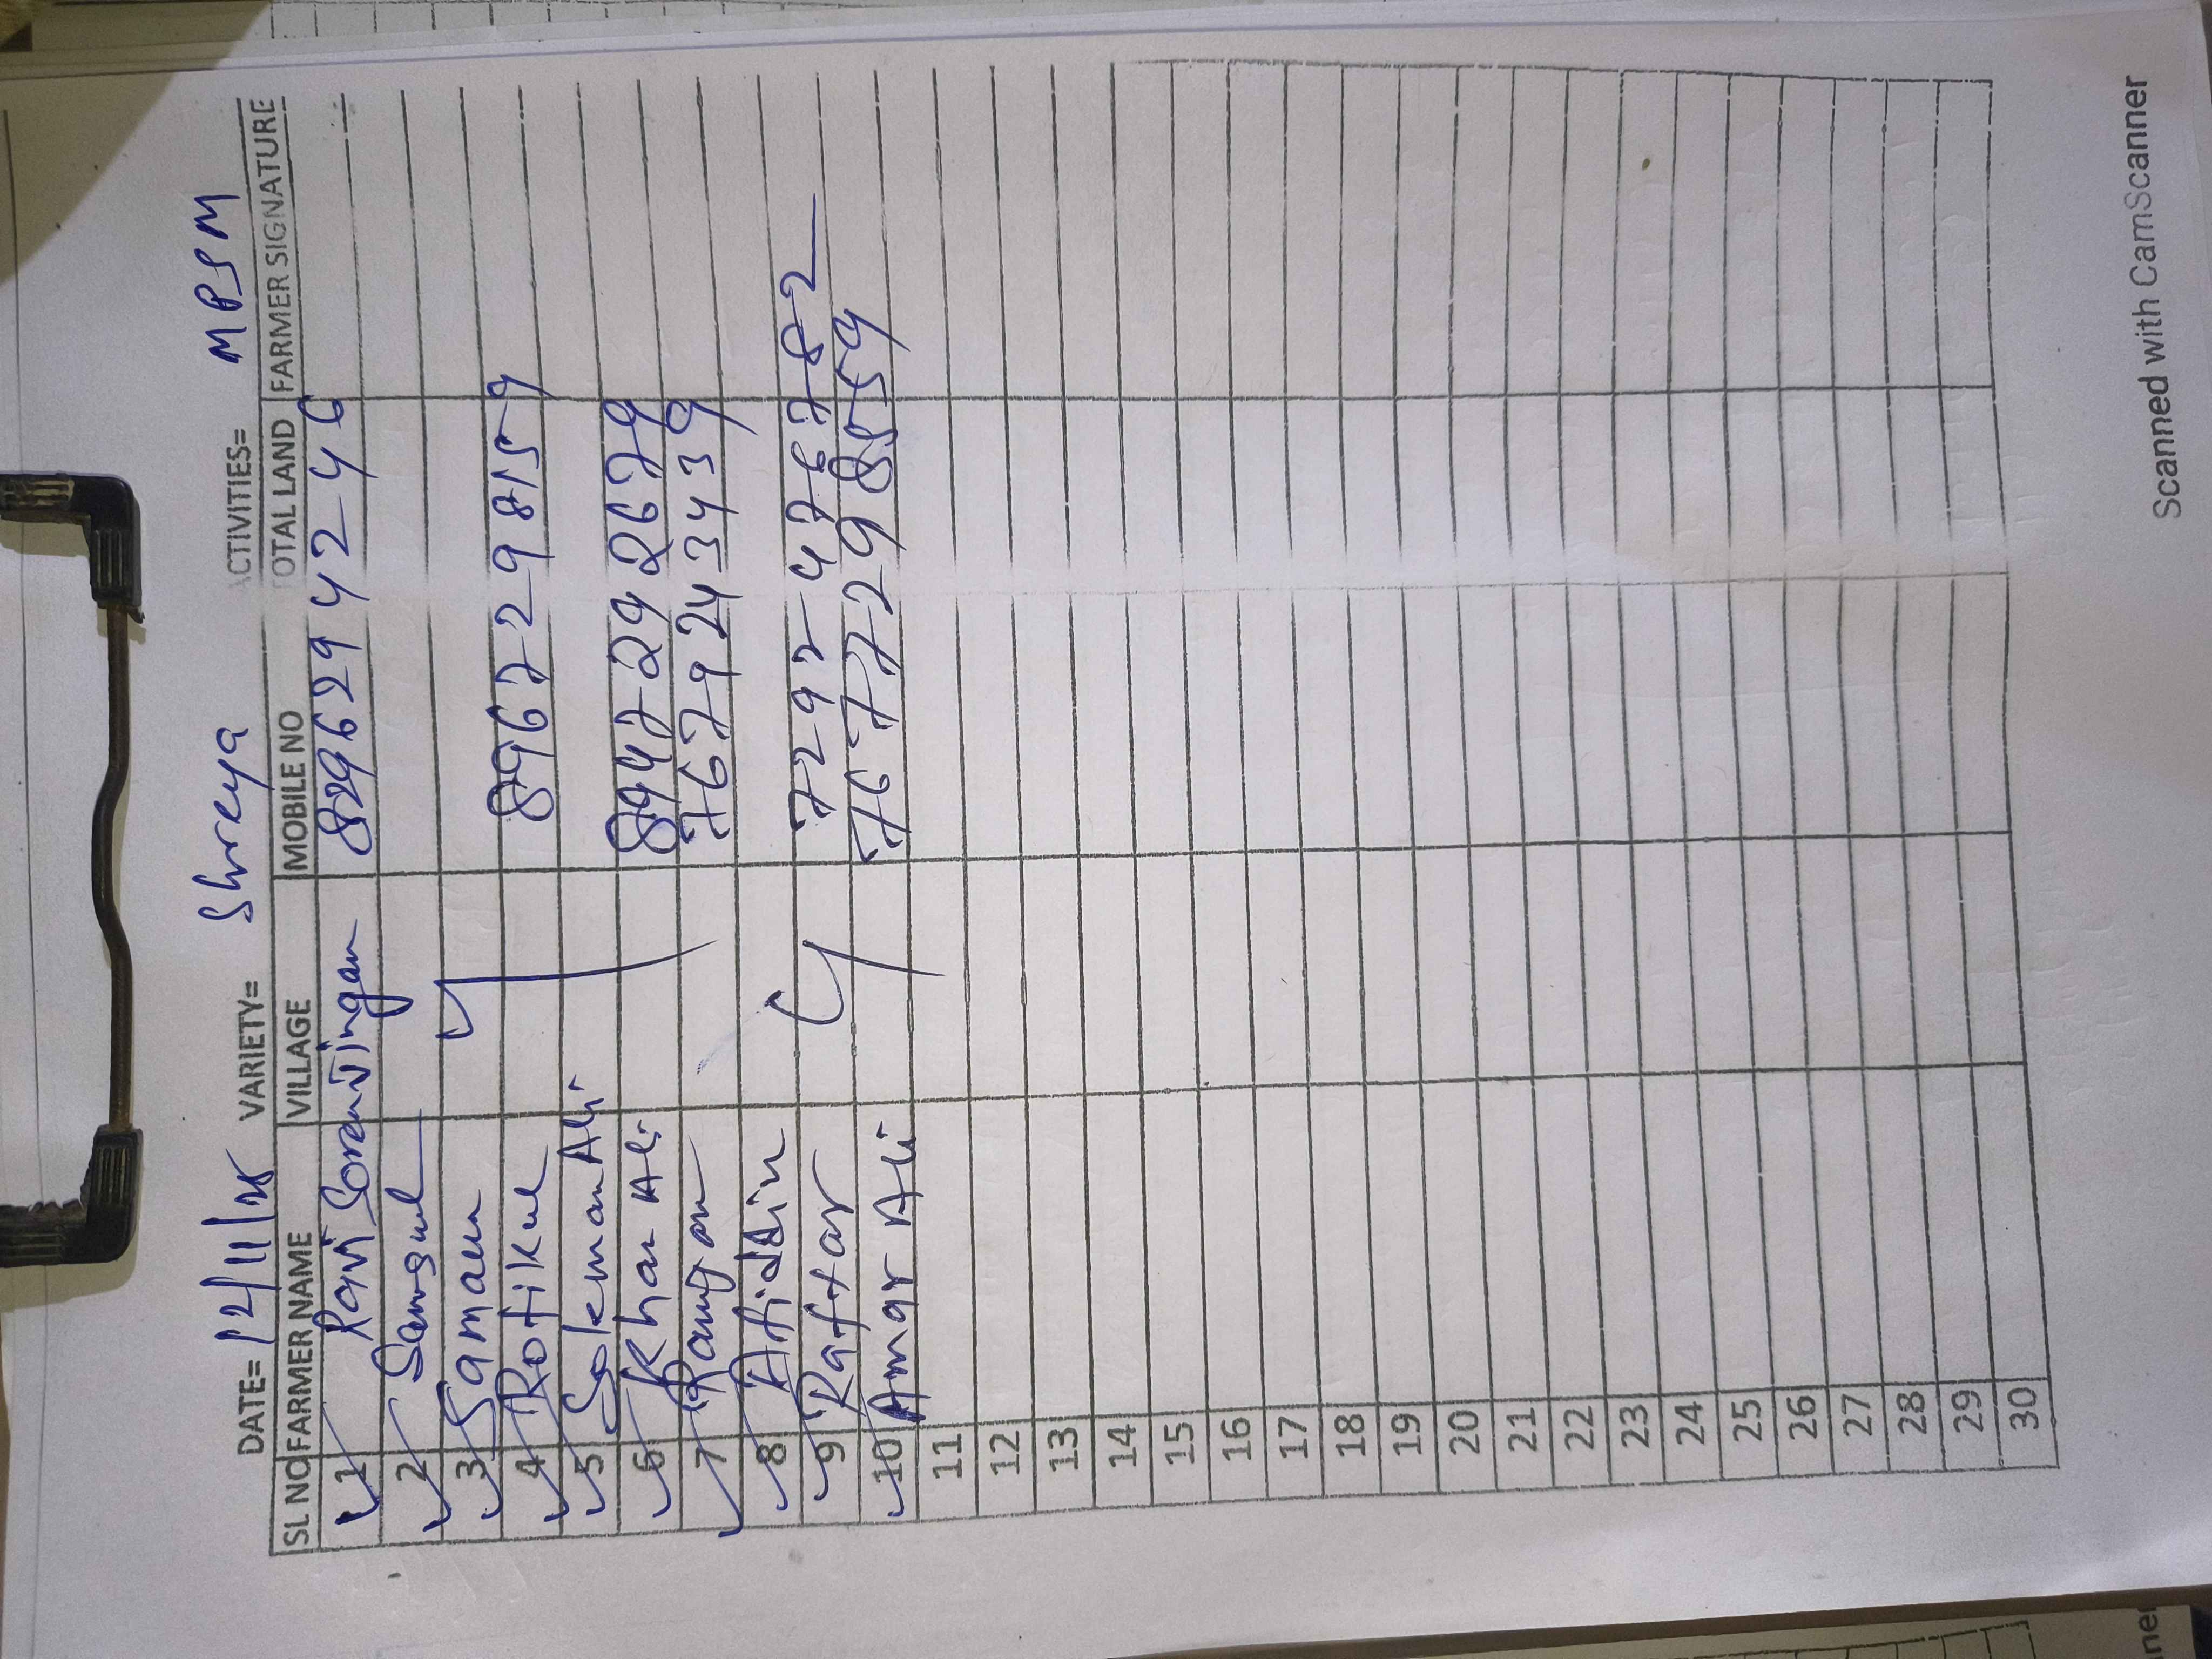 DATE= 12/11/25 VARIETY= Shreya ACTIVITIES= MPSM
SL NO FARMER NAME VILLAGE MOBILE NO TOTAL LAND FARMER SIGNATURE
1 Ravi Soren Jingan 82962942246
2 Samsul
3 Samaun
4 Rofikul 8967298159
5 Soleman Ali
6 Khan Ali 8947292679
7 7679243439
8 Afiddin
9 Raftar 7292476782
10 Amar Ali 7677298559
11
12
13
14
15
16
17
18
19
20
21
22
23
24
25
26
27
28
29
30
Scanned with CamScanner